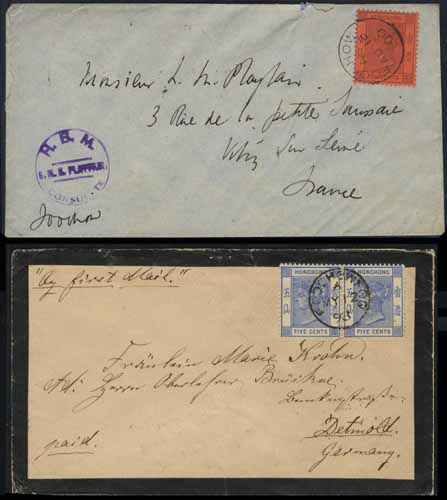 Monsieur L. M. Playfair
3 Rue de la petite Saussaie
Vitry Sur Seine
France
H. B. M.
G. M. H. PLAYFAIR
CONSULATE
Foochow
"by first Mail."
HONGKONG HONGKONG
FIVE CENTS FIVE CENTS
Fräulein Marie Krohn.
Ad: Herrn Oberlehrer
paid.
Detmold.
Germany.